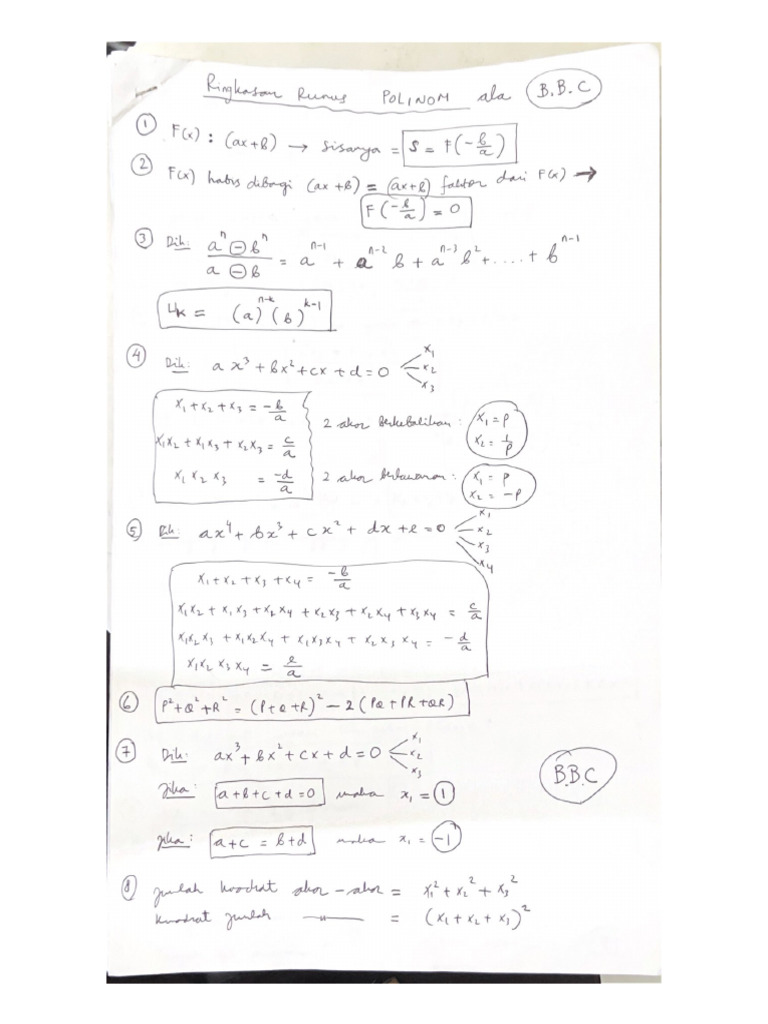 Ringkasan Rumus POLINOM ala B.B.C
① F(x) : (ax+b) → sisanya = S = F(-b/a)
② F(x) habis dibagi (ax+b) = (ax+b) faktor dari F(x) →
F(-b/a) = 0
③ Dik: (aⁿ ⊖ bⁿ)/(a ⊖ b) = aⁿ⁻¹ + aⁿ⁻² b + aⁿ⁻³ b² + .... + bⁿ⁻¹
Uk = (a)ⁿ⁻ᵏ (b)ᵏ⁻¹
④ Dik: ax³ + bx² + cx + d = 0 < x₁ x₂ x₃
x₁ + x₂ + x₃ = -b/a
2 akar berkebalikan: x₁ = p x₂ = 1/p
x₁x₂ + x₁x₃ + x₂x₃ = c/a
x₁ x₂ x₃ = -d/a
2 akar berlawanan: x₁ = p x₂ = -p
⑤ Dik: ax⁴ + bx³ + cx² + dx + e = 0 < x₁ x₂ x₃ x₄
x₁ + x₂ + x₃ + x₄ = -b/a
x₁x₂ + x₁x₃ + x₂x₄ + x₂x₃ + x₂x₄ + x₃x₄ = c/a
x₁x₂x₃ + x₁x₂x₄ + x₁x₃x₄ + x₂x₃x₄ = -d/a
x₁x₂x₃x₄ = e/a
⑥ P² + Q² + R² = (P+Q+R)² - 2(PQ+PR+QR)
⑦ Dik: ax³ + bx² + cx + d = 0 < x₁ x₂ x₃
Jika: a+b+c+d=0 maka x₁ = 1
B.B.C
Jika: a+c = b+d maka x₁ = -1
⑧ Jumlah kuadrat akar-akar = x₁² + x₂² + x₃²
Kuadrat jumlah —〃— = (x₁ + x₂ + x₃)²